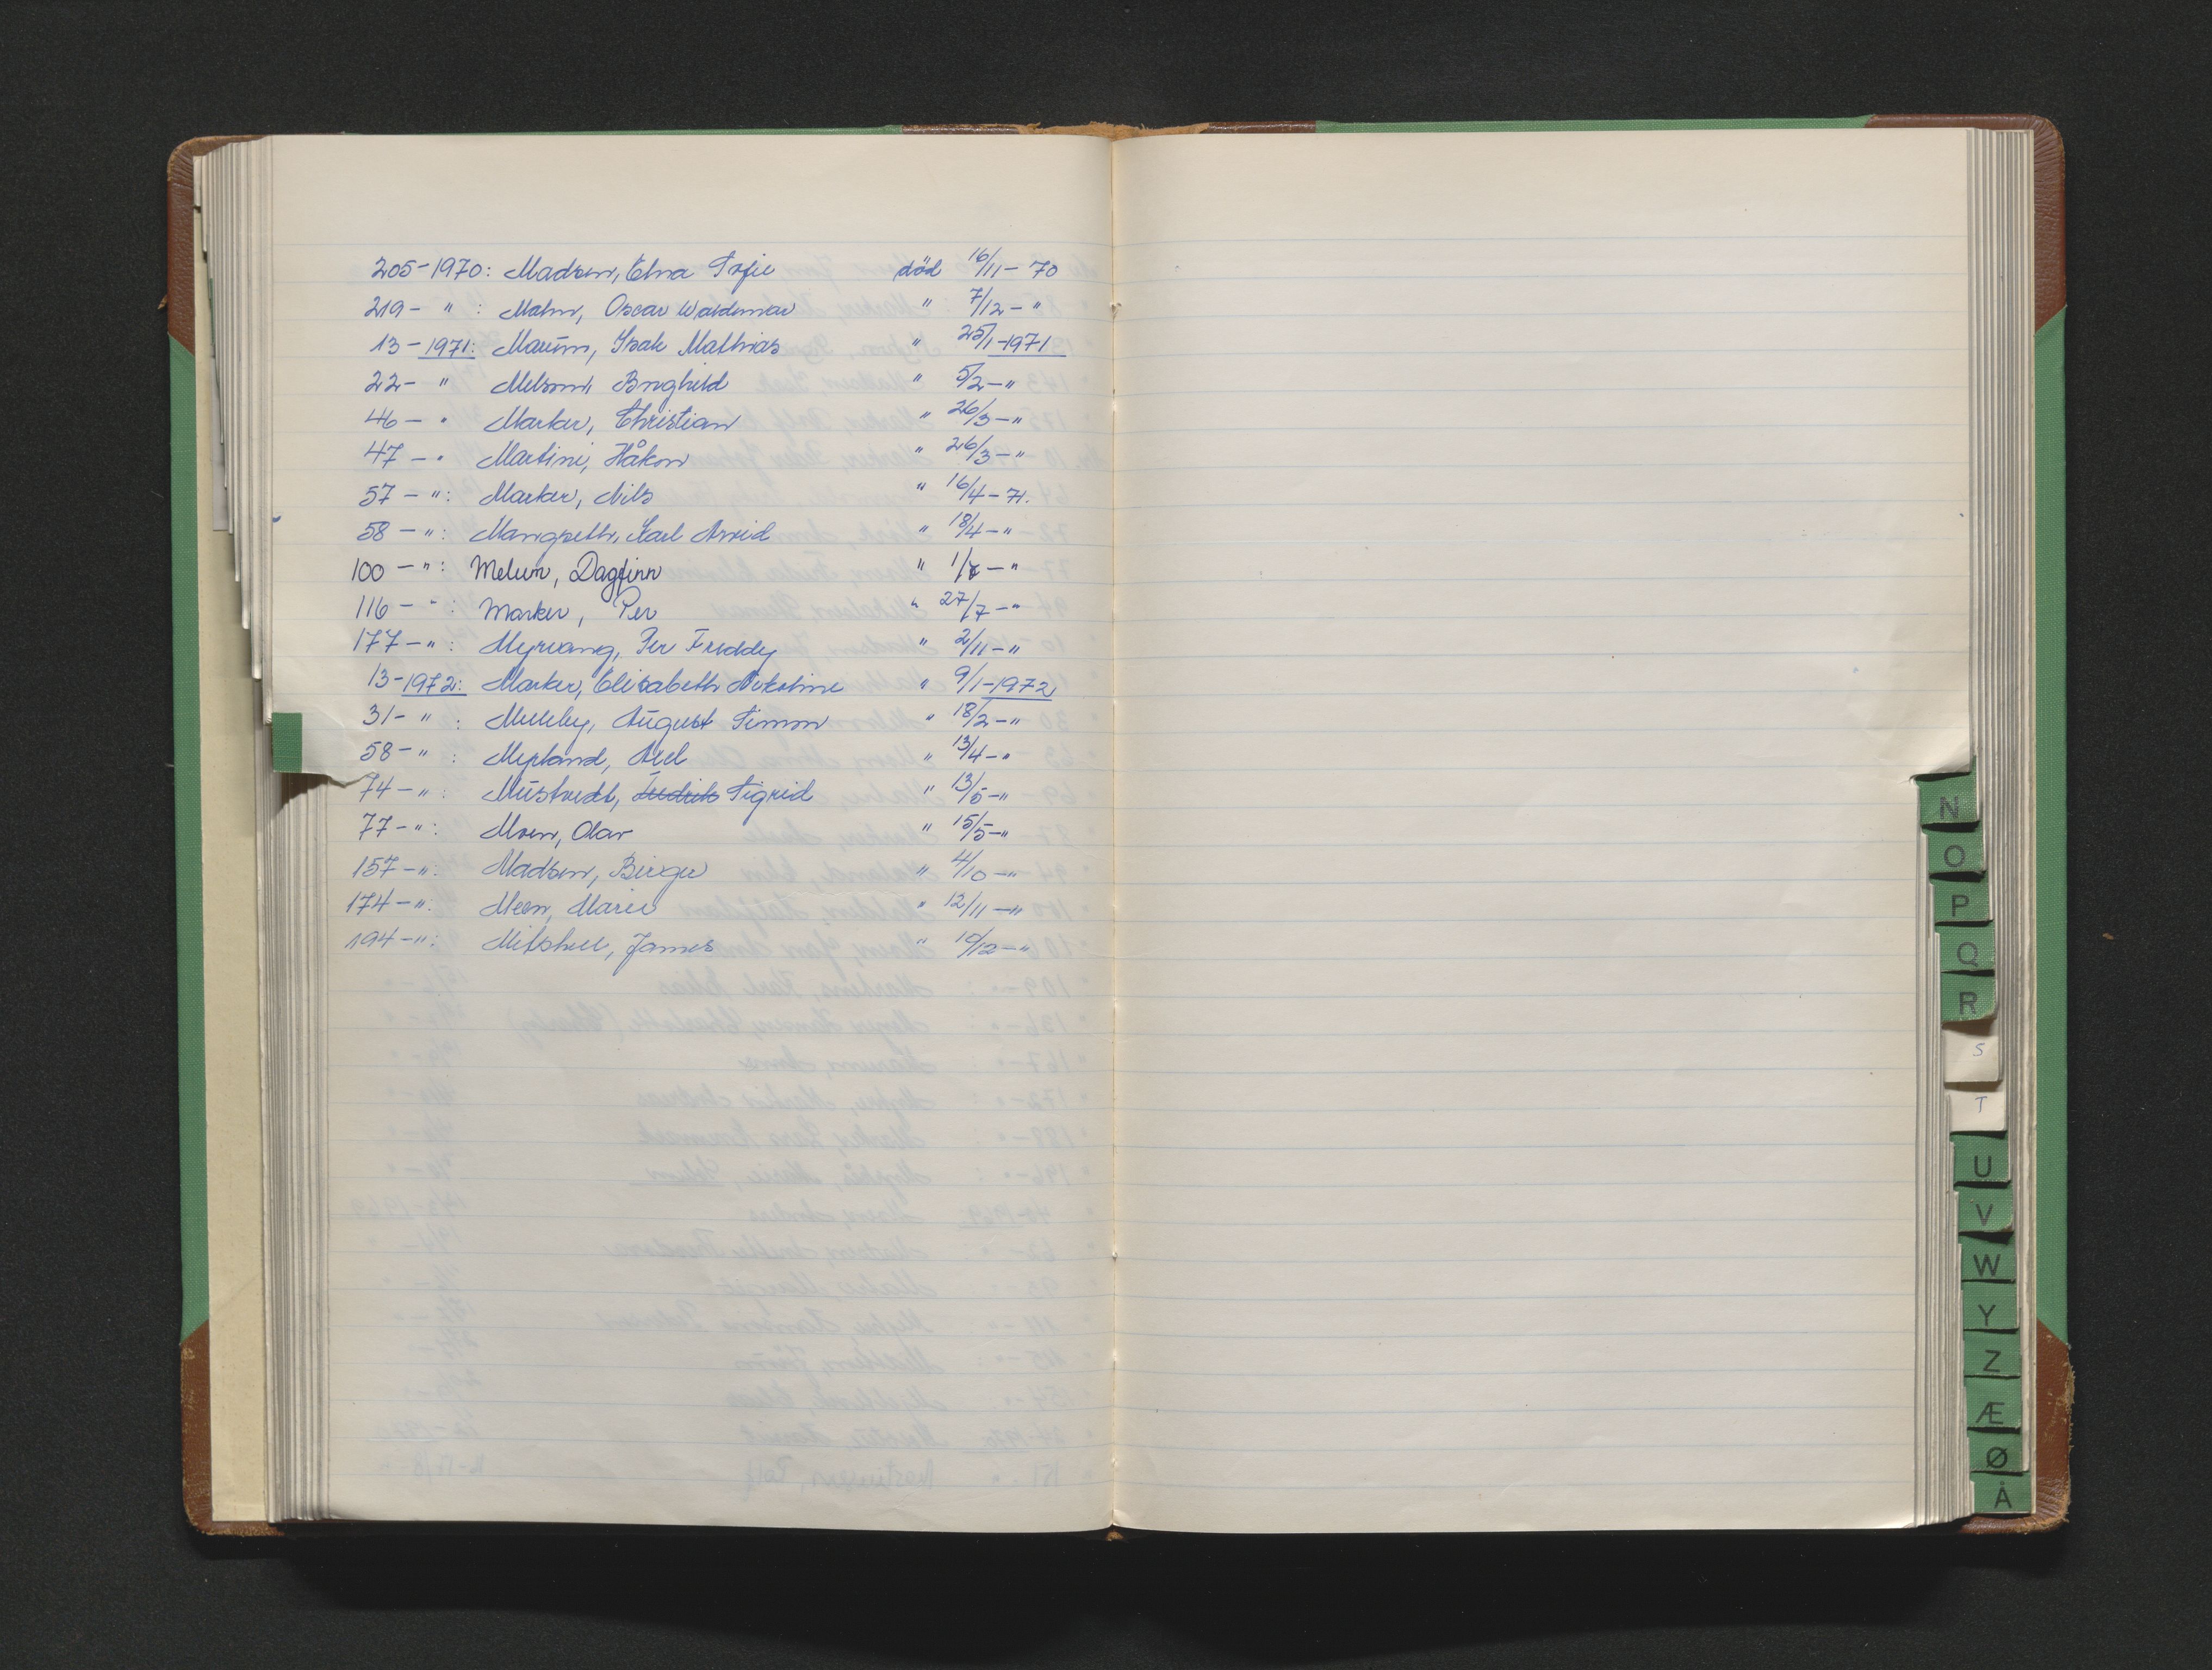 205-1970: Madsen, Elna Sofie død 16/11-70
219- " : Malm, Oscar Waldemar " 7/12- "
13-1971: Maurn, Isak Mathias " 25/1-1971
22- " Melsom, Borghild " 5/2- "
46- " Marker, Christian " 26/3- "
47- " Martini, Håkon " 26/3- "
57- ": Marker, Nils " 16/4-71.
58- ": Mangseth, Karl Arvid " 18/4- "
100- ": Melum, Dagfinn " 1/7- "
116- ": Marker, Per " 27/7- "
177- ": Myrvang, Per Freddy " 2/11- "
13-1972: Marker, Elisabeth Nikoline " 9/1-1972
31- " : August Simon " 18/2- "
58- " : Myland, Axel " 13/4- "
74- " : Mustvedt, Fredrik Sigrid " 13/5- "
77- ": Moen, Olav " 15/5- "
157- ": Madsen, Birger " 4/10- "
174- ": Meen, Marie " 12/11- "
194- ": Mitshell, James " 10/12- "
N
O
P
Q
R
S
T
U
V
W
Y
Z
Æ
Ø
Å